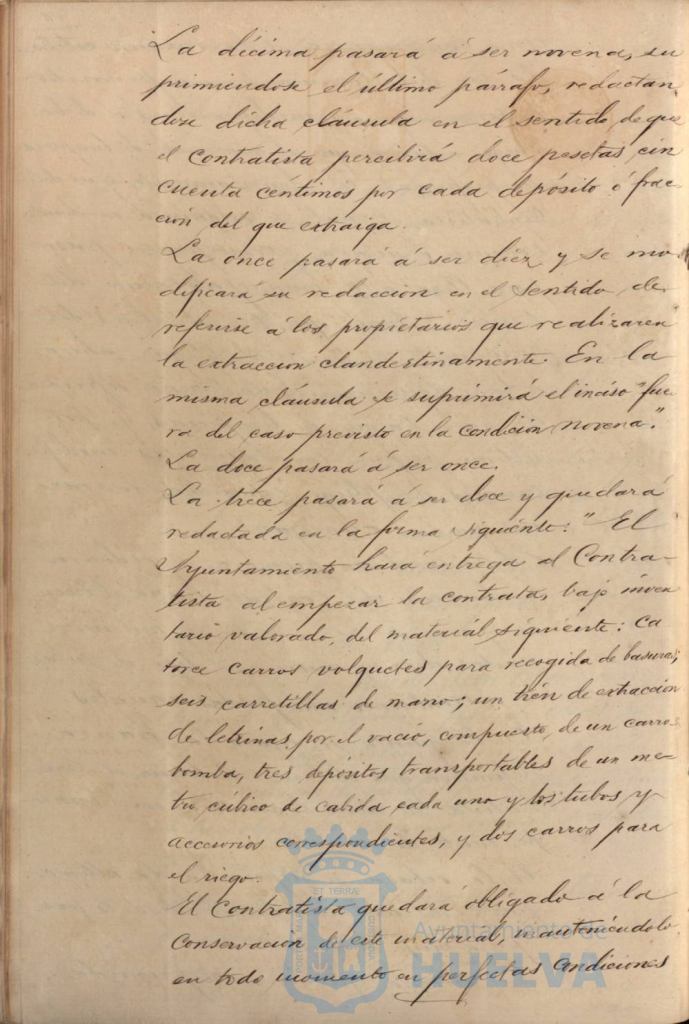 La décima pasará á ser novena, su
primiendose el último párrafo, redactan
dose dicha cláusula en el sentido de que
el contratista percibirá doce pesetas cin
cuenta céntimos por cada depósito ó frac
ción del que extraiga.
La once pasará á ser diez y se mo
dificará su redaccion en el sentido de
referirse á los propietarios que realizaren
la extraccion clandestinamente. En la
misma cláusula se suprimirá el inciso "fue
ra del caso previsto en la condición novena".
La doce pasará á ser once.
La trece pasará á ser doce y quedará
redactada en la forma siguiente: "El
Ayuntamiento hará entrega al Contra-
tista al empezar la contrata, bajo inven
tario valorado, del material siguiente: Ca
torce carros volquetes para recogida de basuras;
seis carretillas de mano; un trén de extracción
de letrinas por el vacio, compuesto de un carro
bomba, tres depósitos transportables de un me-
tro cúbico de cabida cada uno y los tubos y
accesorios correspondientes, y dos carros para
el riego.
El Contratista quedará obligado á la
conservación de este material, manteniéndolo
en todo momento en perfectas condiciones
ET TERRÆ
Ayuntamiento de
HUELVA